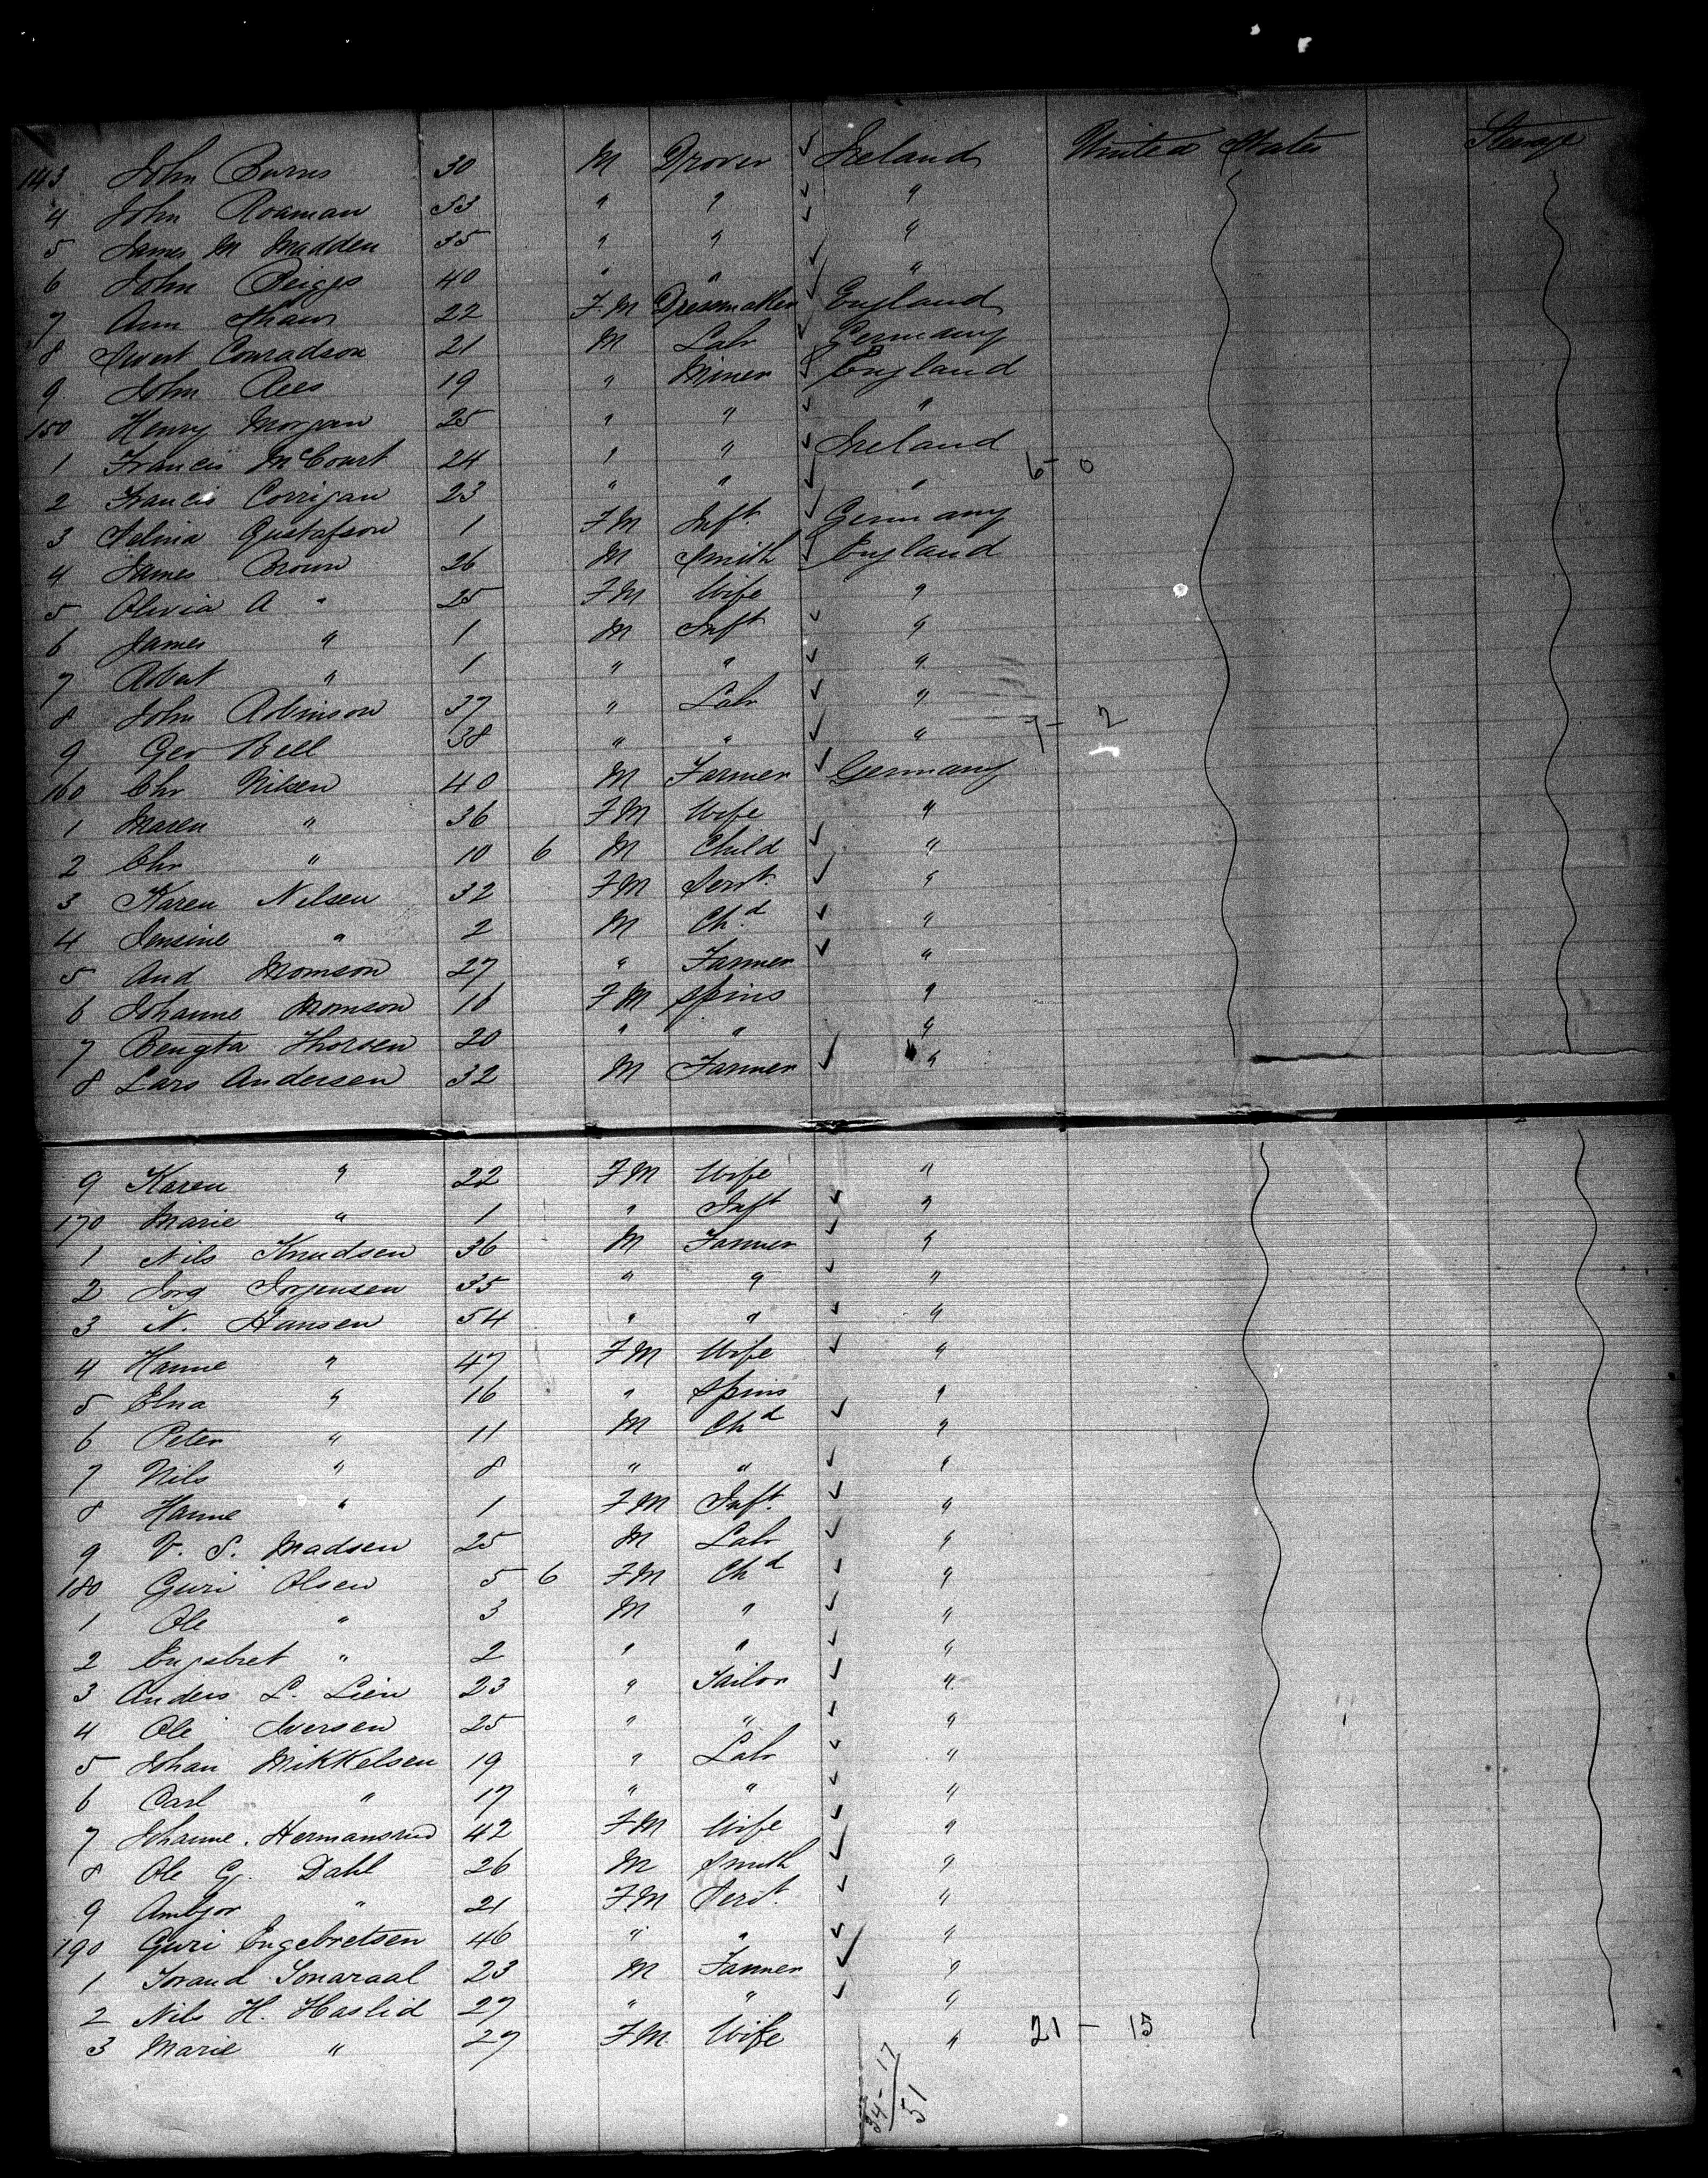 143 John Burns 30 M Drover ✓ Ireland United States Steerage
4 John Roaman 33 " " ✓ "
5 James M Madden 35 " " ✓ "
6 John Beiggs 40 " " ✓ "
7 Ann Shaw 22 F.M Dressmaker ✓ England
8 Conradson 21 M Labr ✓ Germany
9 John Rees 19 " Miner ✓ England
150 Henry Morgan 25 " " ✓ "
1 Francis McCourt 24 " " ✓ Ireland
2 Francis Corrigan 23 " " ✓ " 6 - 0
3 Selina Gustafson 1 FM Inft. ✓ Germany
4 James Brown 26 M Smith ✓ England
5 Olivia A " 25 FM Wife "
6 James " 1 M Inft ✓ "
7 Robert " 1 " " ✓ "
8 John Robinson 37 " Labr ✓ "
9 Geo Bell 38 " " ✓ " 7 - 2
160 Chr Nilsen 40 M Farmer ✓ Germany
1 Maren " 36 FM Wife "
2 Chr " 10 6 M Child ✓ "
3 Karen Nelsen 32 FM Servt. ✓ "
4 Jensine " 2 M Chd ✓ "
5 And Momson 27 " Farmer ✓ "
6 Johanne Momson 16 FM Spins "
7 Bengta Thorsen 20 " " "
8 Lars Andersen 32 M Farmer ✓ "
9 Karen " 22 FM Wife "
170 Marie " 1 " Inft ✓ "
1 Nils Knudsen 36 M Farmer ✓ "
2 Jorg Jorgensen 35 " " ✓ "
3 N. Hansen 54 " " ✓ "
4 Hanne " 47 FM Wife ✓ "
5 Elna " 16 " Spins "
6 Peter " 11 M Chd ✓ "
7 Nils " 8 " " ✓ "
8 Hanne " 1 FM Inft. ✓ "
9 V. S. Madsen 25 M Labr ✓ "
180 Guri Olsen 5 6 FM Chd ✓ "
1 Ole " 3 M " ✓ "
2 Engebret " 2 " " ✓ "
3 Anders L. Lien 23 " Tailor ✓ "
4 Ole Iversen 25 " " ✓ "
5 Johan Mikkelsen 19 " Labr ✓ "
6 Carl " 17 " " ✓ "
7 Johanne Hermansrud 42 FM Wife ✓ "
8 Ole G. Dahl 26 M Smith ✓ "
9 Ambjor " 21 FM Servt. ✓ "
190 Guri Engebretsen 46 " " ✓ "
1 23 M Farmer ✓ "
2 Nils H. Haslid 27 " " ✓ "
3 Marie " 27 FM. Wife " 21 - 15
34 - 17
51